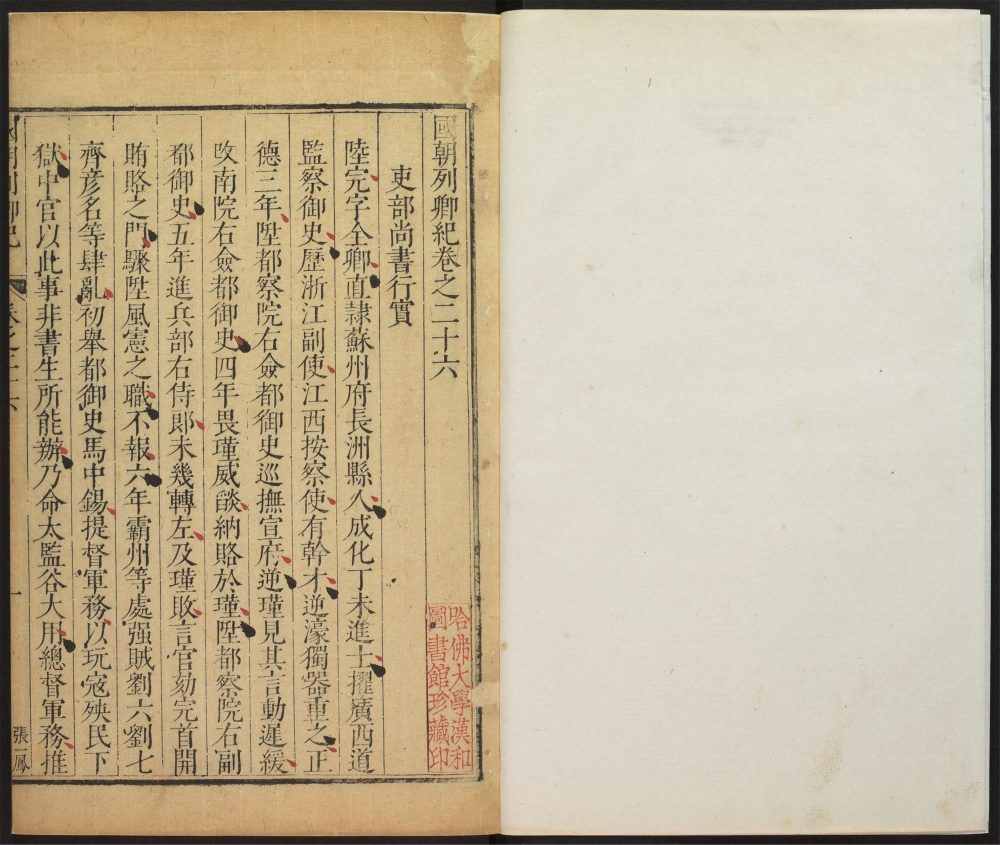 國朝列卿紀卷之二十六
吏部尚書行實
陸完字全卿直隸蘇州府長洲縣人成化丁未進士擢廣西道
監察御史歷浙江副使江西按察使有幹才逆濠獨器重之正
德三年陞都察院右僉都御史巡撫宣府逆瑾見其言動遲緩
改南院右僉都御史四年畏瑾威燄納賂於瑾陞都察院右副
都御史五年進兵部右侍郎未幾轉左及瑾敗言官劾完首開
賄賂之門驟陞風憲之職不報六年霸州等處强賊劉六劉七
齊彦名等肆亂初舉都御史馬中錫提督軍務以玩寇殃民下
獄中官以此事非書生所能辦乃命太監谷大用總督軍務推
國朝列卿紀
卷之二十六
一
張鳳
哈佛大學漢和
圖書館珍藏印